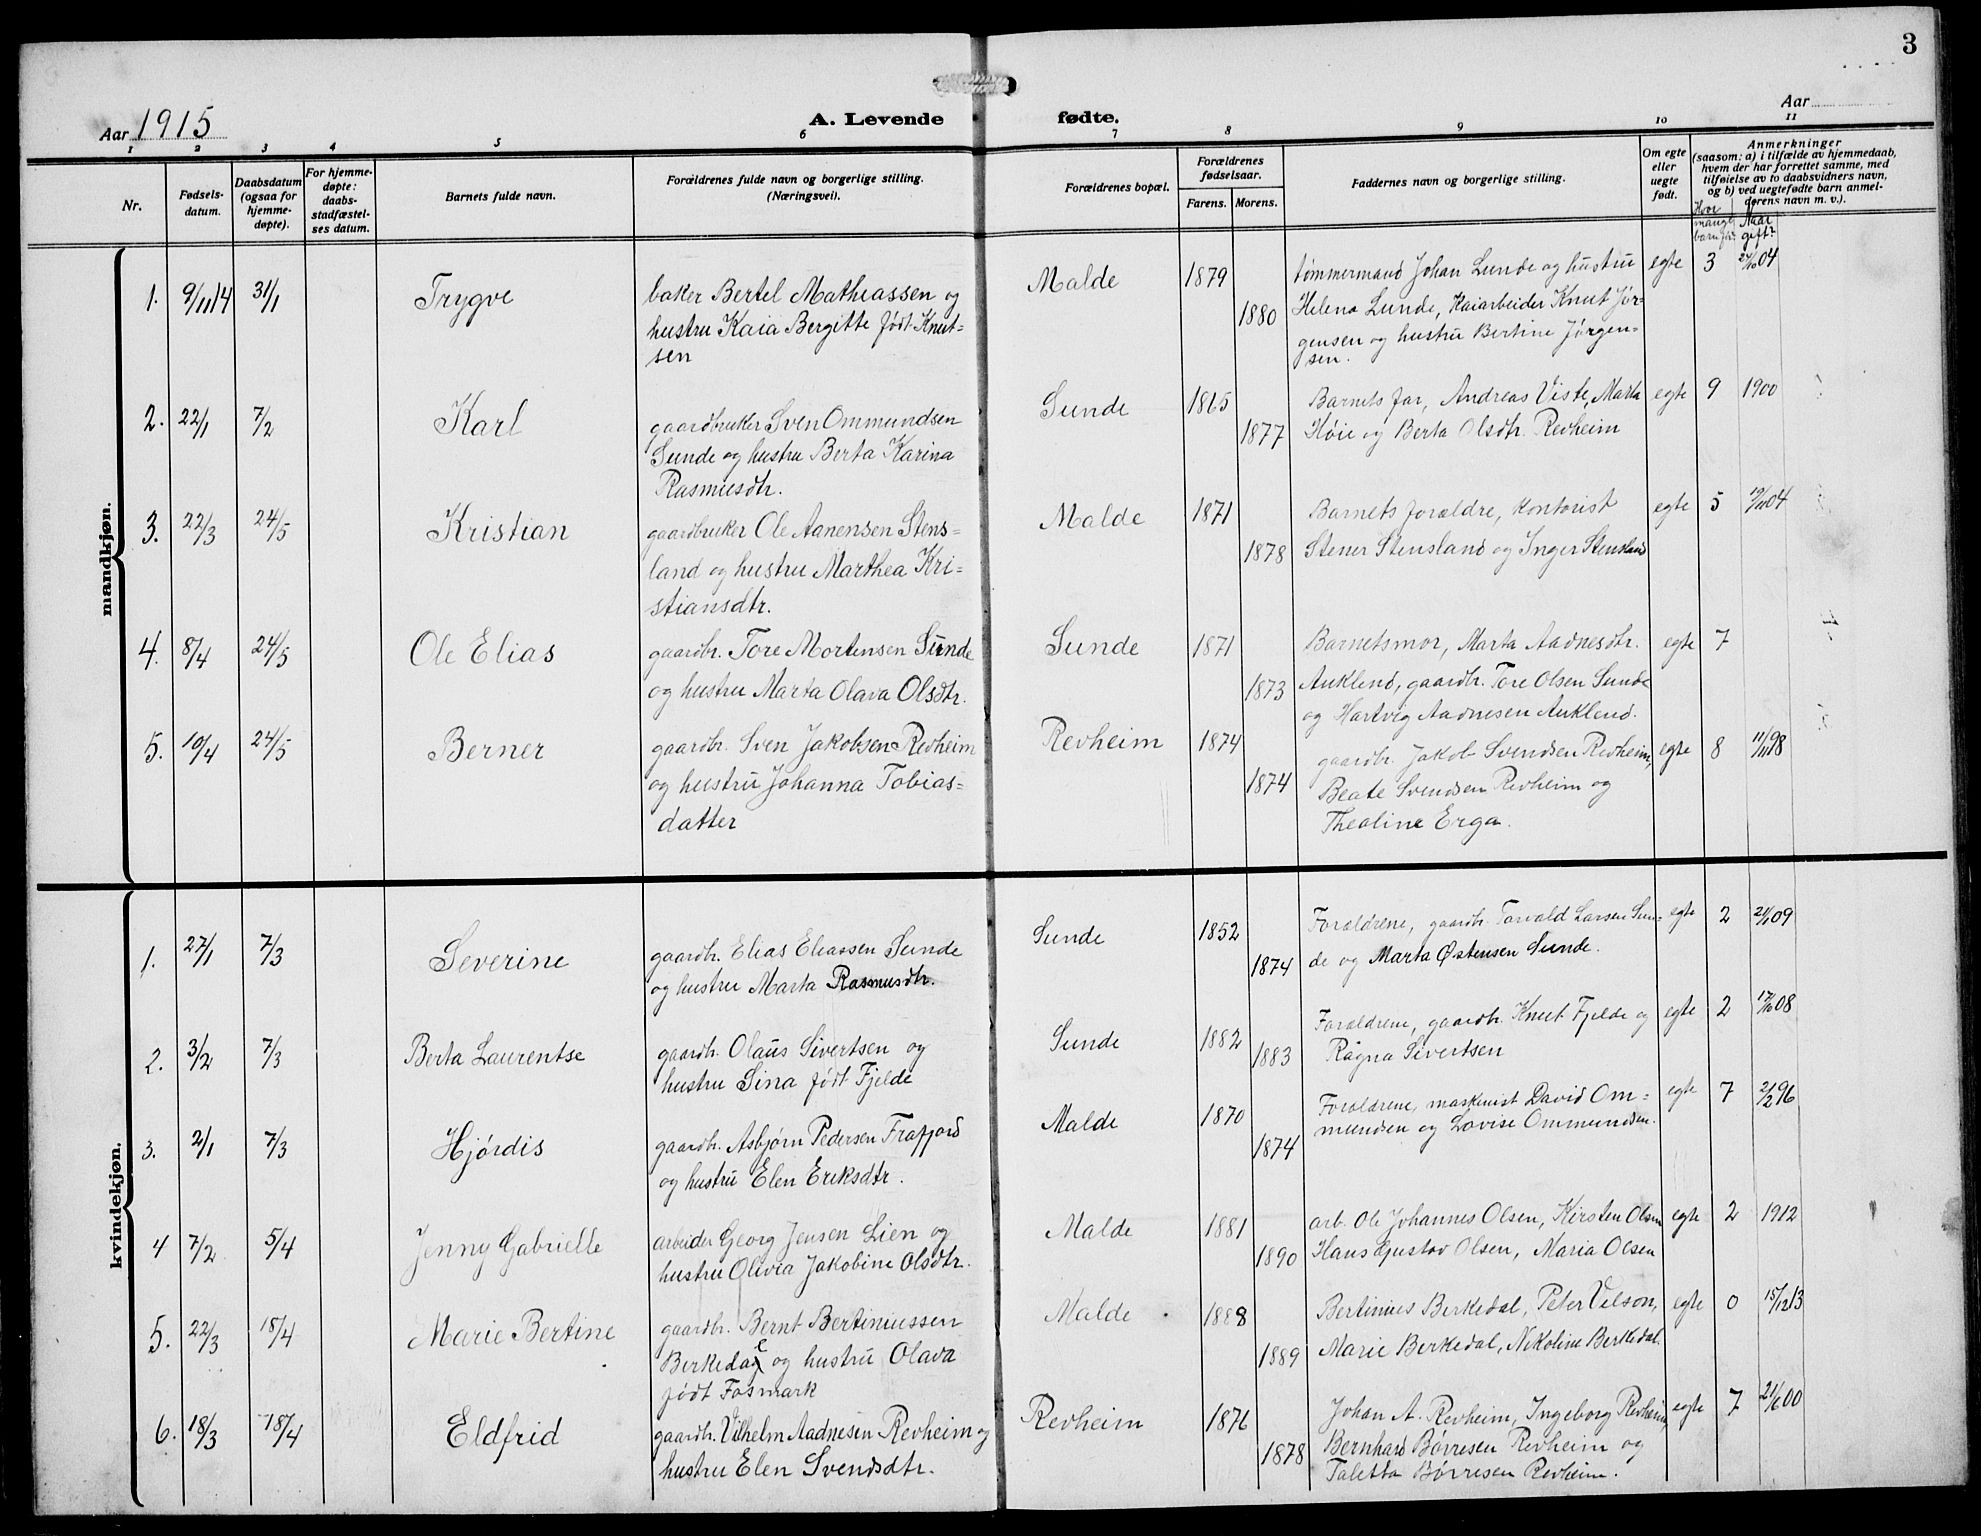 3
Aar 1915
A. Levende fødte.
Aar
1 2 3 4 5 6 7 8 9 10 11
Nr.
Fødsels-
datum.
Daabsdatum
(ogsaa for
hjemme-
døpte).
For hjemme-
døpte:
daabs-
stadfæstel-
ses datum.
Barnets fulde navn.
Forældrenes fulde navn og borgerlige stilling.
(Næringsvei).
Forældrenes bopæl.
Forældrenes
fødselsaar.
Farens. Morens.
Faddernes navn og borgerlige stilling.
Om egte
eller
uegte
født.
Anmerkninger
(saasom: a) i tilfælde av hjemmedaab,
hvem der har forrettet samme, med
tilføielse av to daabsvidners navn,
og b) ved uegtefødte barn anmel-
derens navn m. v.).
Hvor
mange
barn før?
Naar
gift?
mandkjøn.
1. 9/11 14 31/1 Trygve
baker Bertel Mathiassen og
hustru Kaia Bergitte født Knut=
sen
Malde 1879 1880
tømmermand Johan Lunde og hustru
Helena Lunde, Kaiarbeider Knut Jør=
gensen og hustru Bertine Jørgen=
sen.
egte 3 24/10 04
2. 22/1 7/2 Karl
gaardbruker Sven Ommundsen
Sunde og hustru Berta Karina
Rasmusdtr.
Sunde 1865 1877
Barnets far, Andreas Viste, Marta
Høie og Berta Olsdtr. Revheim
egte 9 1900
3. 22/3 24/5 Kristian
gaardbruker Ole Aanensen Stens=
land og hustru Marthea Kri=
stiansdtr.
Malde 1871 1878
Barnets forældre, kontorist
Stener Stensland og Inger Stensland
egte 5 04
4. 8/4 24/5 Ole Elias
gaardbr. Tore Mortensen Sunde
og hustru Marta Olava Olsdtr.
Sunde 1871 1873
Barnetsmor, Marta Aadnesdtr.
Auklend, gaardbr. Tore Olsen Sunde
og Hartvig Aadnesen Auklend.
egte 7
5. 10/4 24/5 Berner
gaardbr. Sven Jakobsen Revheim
og hustru Johanna Tobias=
datter
Revheim 1874 1874
gaardbr. Jakob Svendsen Revheim,
Beate Svendsen Revheim og
Theoline Erga.
egte 8 11/11 98
kvindekjøn.
1. 27/1 7/3 Severine
gaardbr. Elias Eliassen Sunde
og hustru Marta Rasmusdtr.
Sunde 1852 1874
Forældrene, gaardbr. Torvald Larsen Sun=
de og Marta Østensen Sunde.
egte 2 09
2. 3/2 7/3 Berta Laurentse
gaardbr. Olaus Sivertsen og
hustru Sina født Fjelde
Sunde 1882 1883
Forældrene, gaardbr. Knut Fjelde og
Ragna Sivertsen
egte 2 17/10 08
3. 2/1 7/3 Hjørdis
gaardbr. Asbjørn Pedersen Frafjord
og hustru Elen Eriksdtr.
Malde 1870 1874
Forældrene, maskinist David Om=
mundsen og Lovise Ommundsen.
egte 7 2/2 96
4 7/2 5/4 Jenny Gabrielle
arbeider Georg Jensen Lien og
hustru Olivia Jakobine Olsdtr.
Malde 1881 1890
arb. Ole Johannes Olsen, Kirsten Olsen
Hans Gustav Olsen, Maria Olsen
egte 2 1912
5. 22/3 18/4 Marie Bertine
gaardbr. Bernt Bertiniussen
Berkedal og hustru Olava
født Fosmark
Malde 1888 1889
Bertinius Berkedal, Peter Velson,
Marie Berkedal, Nikoline Berkedal.
egte 0 15/12 13
6. 18/3 18/4 Eldfrid
gaardbr. Vilhelm Aadnesen Revheim og
hustru Elen Svendsdtr.
Revheim 1876 1878
Johan A. Revheim, Ingeborg Revheim,
Bernhard Børresen Revheim og
Taletta Børresen Revheim.
egte 7 21/6 00